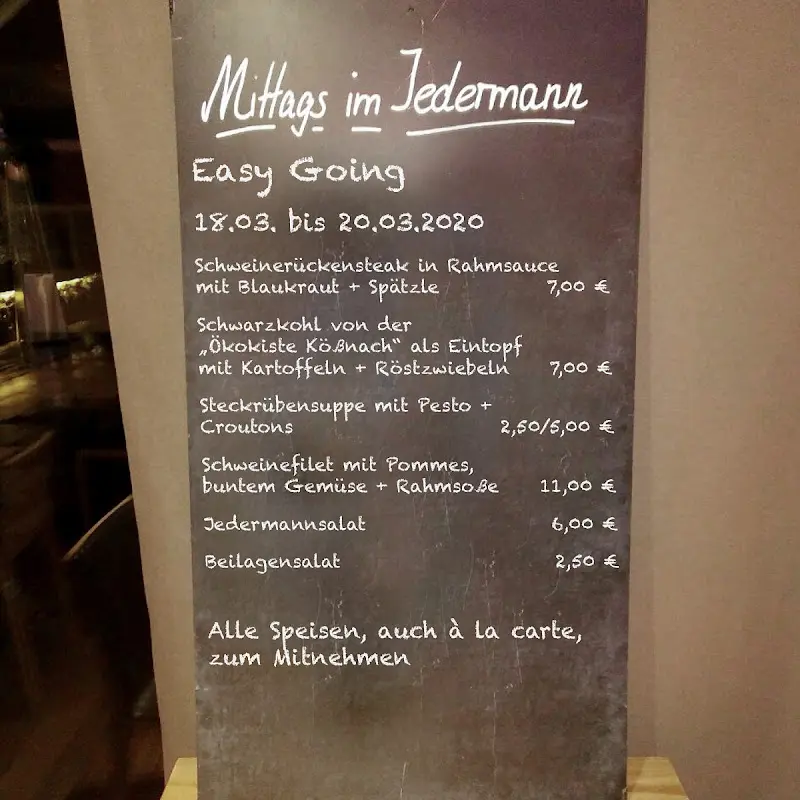 Mittags im Jedermann
Easy Going
18.03. bis 20.03.2020
Schweinerückensteak in Rahmsauce
mit Blaukraut + Spätzle 7,00 €
Schwarzkohl von der
„Ökokiste Kößnach“ als Eintopf
mit Kartoffeln + Röstzwiebeln 7,00 €
Steckrübensuppe mit Pesto +
Croutons 2,50/5,00 €
Schweinefilet mit Pommes,
buntem Gemüse + Rahmsoße 11,00 €
Jedermannsalat 6,00 €
Beilagensalat 2,50 €
Alle Speisen, auch à la carte,
zum Mitnehmen